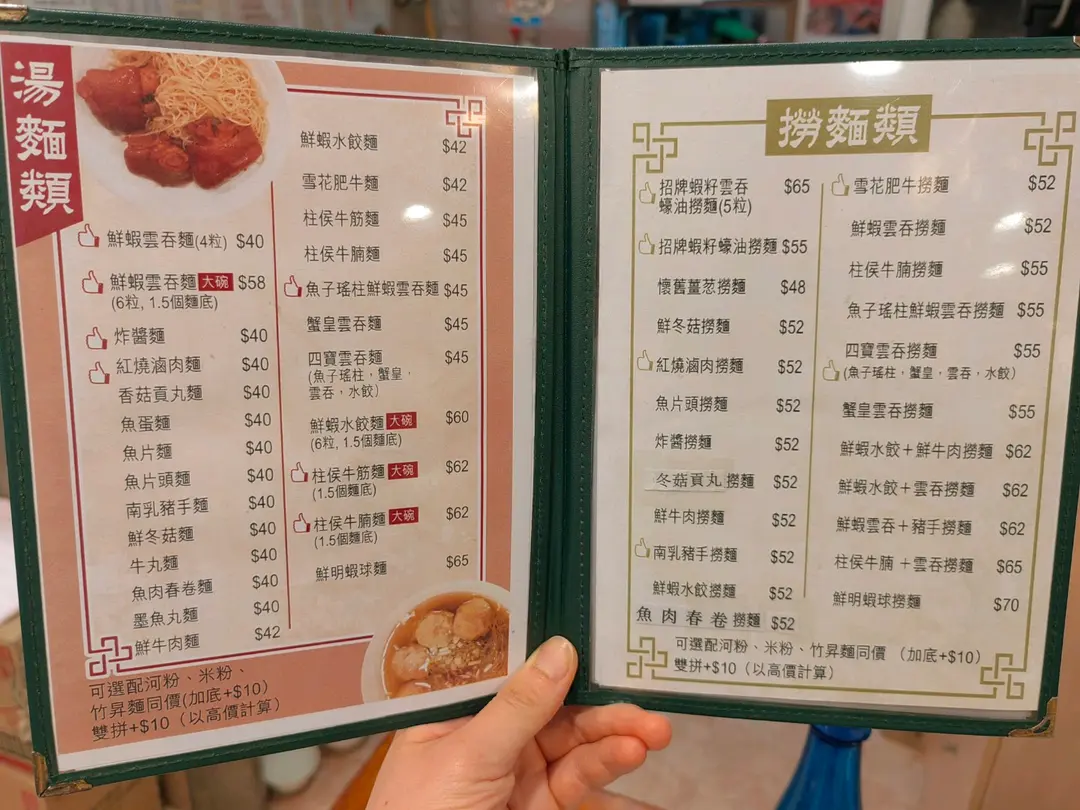 湯麵類
鮮蝦雲吞麵(4粒) $40
鮮蝦雲吞麵 大碗 $58
(6粒, 1.5個麵底)
炸醬麵 $40
紅燒滷肉麵 $40
香菇貢丸麵 $40
魚蛋麵 $40
魚片麵 $40
魚片頭麵 $40
南乳豬手麵 $40
鮮冬菇麵 $40
牛丸麵 $40
魚肉春卷麵 $40
墨魚丸麵 $40
鮮牛肉麵 $42
鮮蝦水餃麵 $42
雪花肥牛麵 $42
柱侯牛筋麵 $45
柱侯牛腩麵 $45
魚子瑤柱鮮蝦雲吞麵 $45
蟹皇雲吞麵 $45
四寶雲吞麵 $45
(魚子瑤柱，蟹皇，
雲吞，水餃)
鮮蝦水餃麵 大碗 $60
(6粒, 1.5個麵底)
柱侯牛筋麵 大碗 $62
(1.5個麵底)
柱侯牛腩麵 大碗 $62
(1.5個麵底)
鮮明蝦球麵 $65
可選配河粉、米粉、
竹昇麵同價(加底+$10)
雙拼+$10（以高價計算）
撈麵類
招牌蝦籽雲吞 $65
蠔油撈麵(5粒)
招牌蝦籽蠔油撈麵 $55
懷舊薑葱撈麵 $48
鮮冬菇撈麵 $52
紅燒滷肉撈麵 $52
魚片頭撈麵 $52
炸醬撈麵 $52
冬菇貢丸撈麵 $52
鮮牛肉撈麵 $52
南乳豬手撈麵 $52
鮮蝦水餃撈麵 $52
魚肉春卷撈麵 $52
雪花肥牛撈麵 $52
鮮蝦雲吞撈麵 $52
柱侯牛腩撈麵 $55
魚子瑤柱鮮蝦雲吞撈麵 $55
四寶雲吞撈麵 $55
(魚子瑤柱，蟹皇，雲吞，水餃)
蟹皇雲吞撈麵 $55
鮮蝦水餃＋鮮牛肉撈麵 $62
鮮蝦水餃＋雲吞撈麵 $62
鮮蝦雲吞＋豬手撈麵 $62
柱侯牛腩＋雲吞撈麵 $65
鮮明蝦球撈麵 $70
可選配河粉、米粉、竹昇麵同價 （加底+$10）
雙拼+$10（以高價計算）